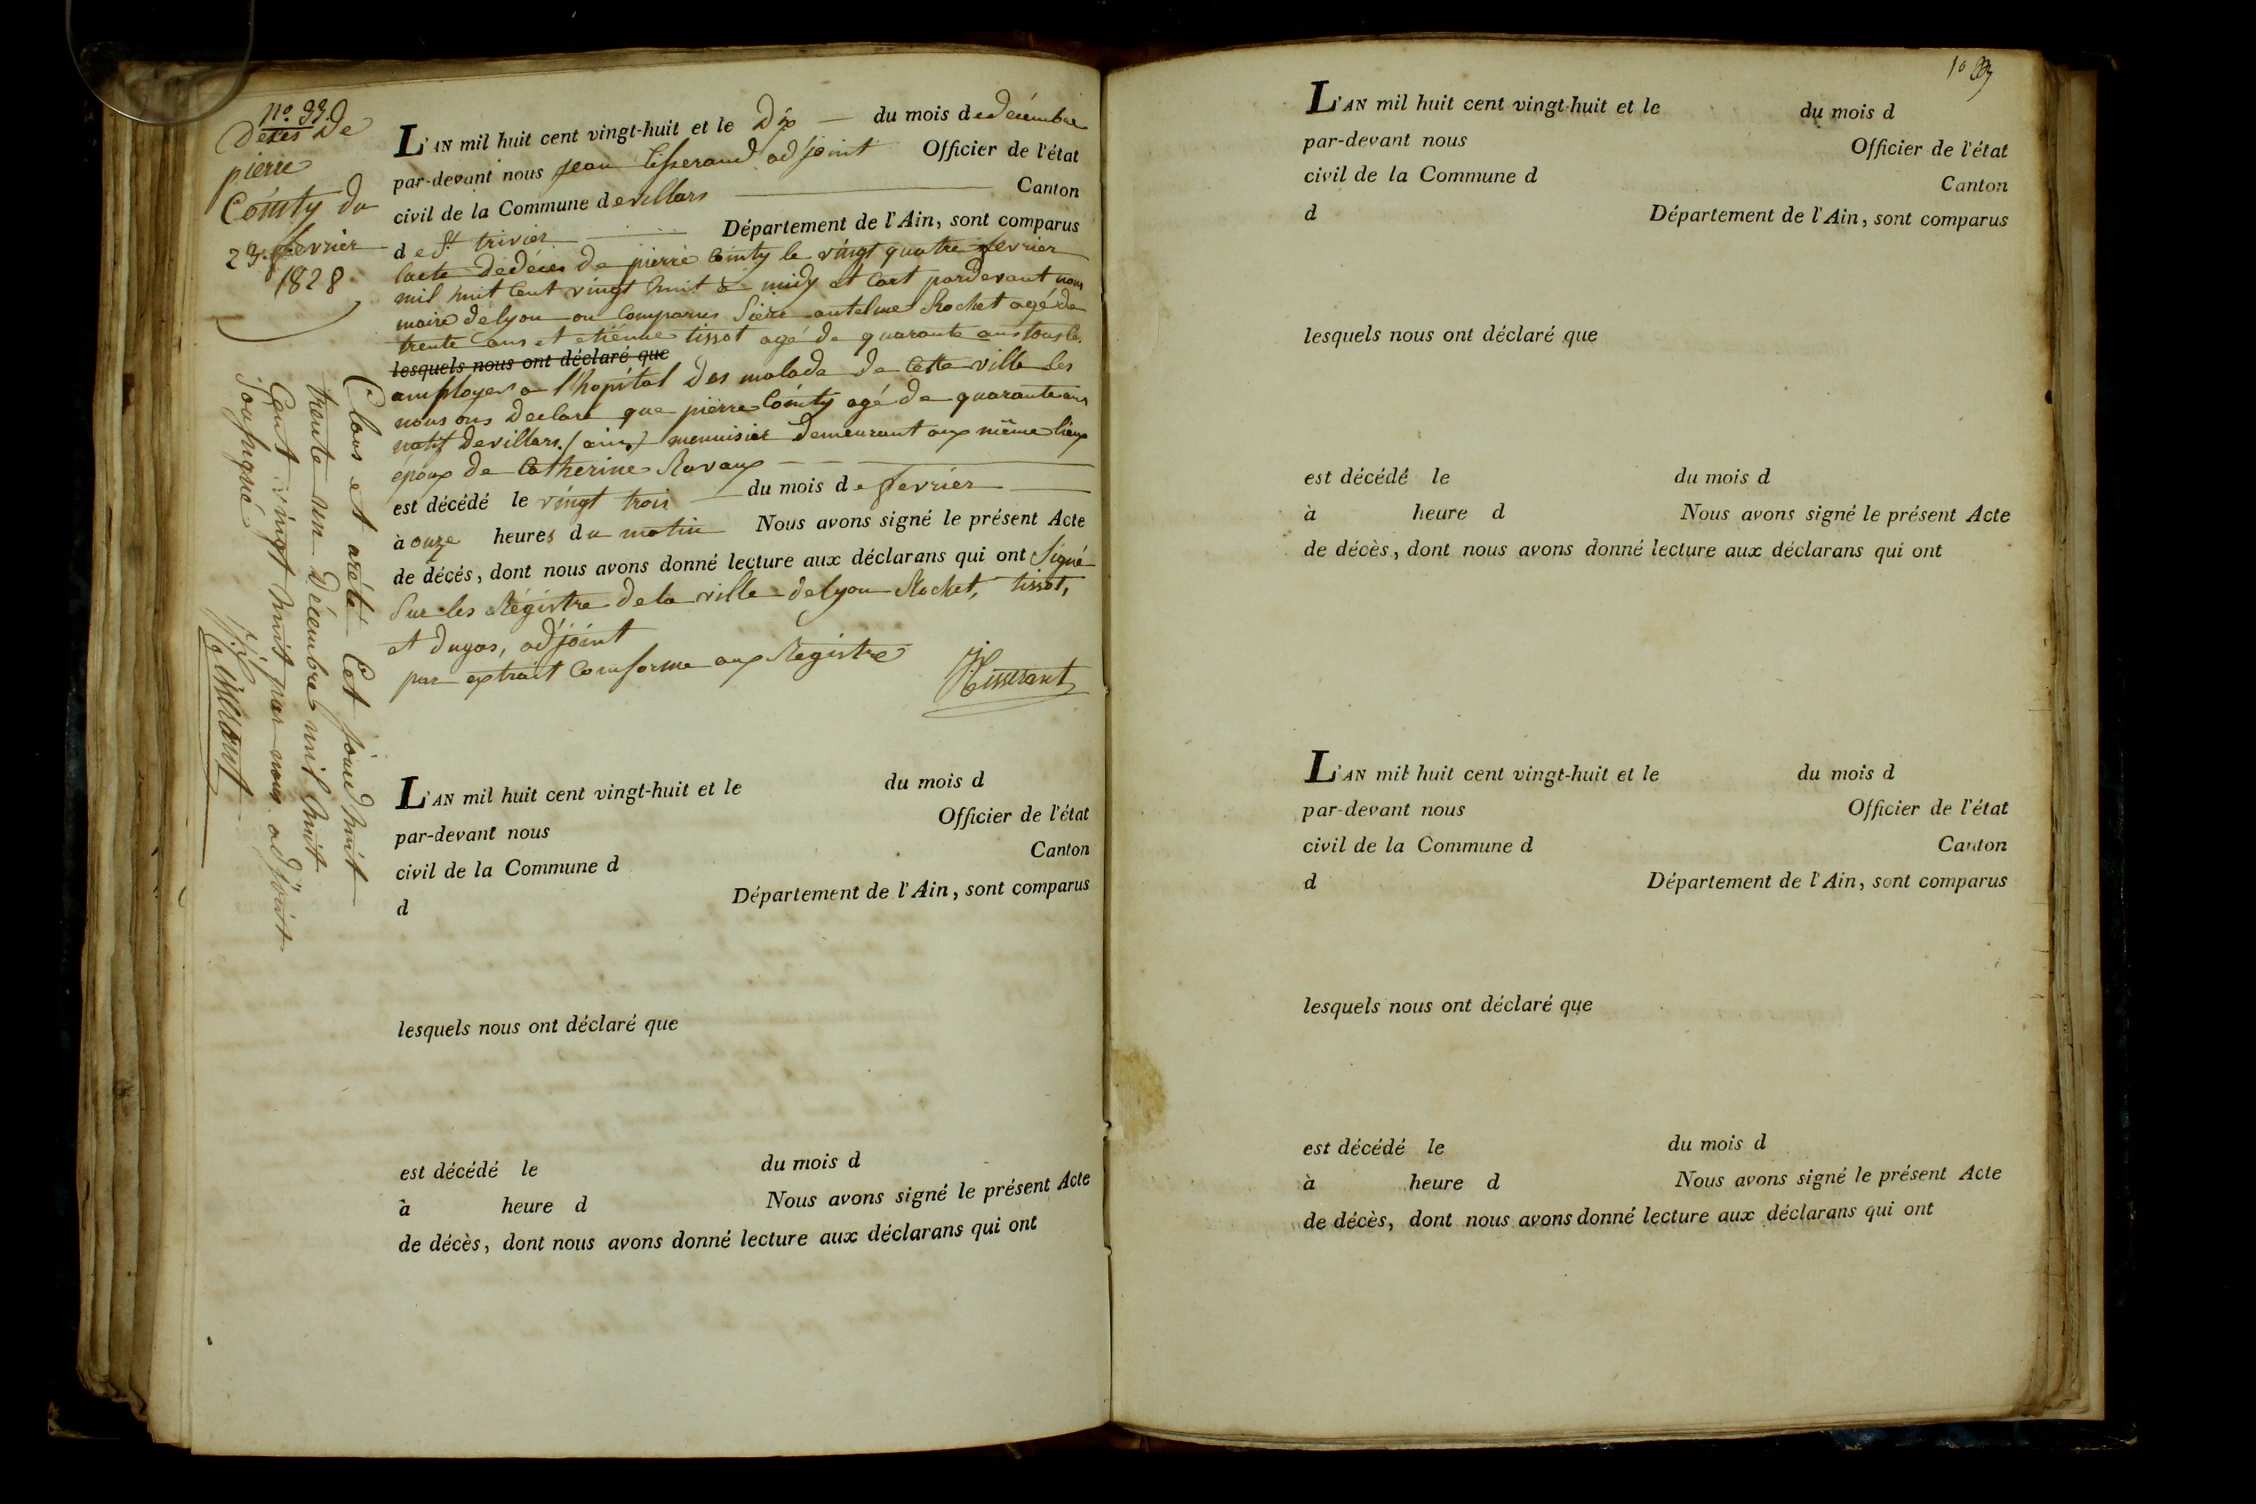 no. 33.
Décés de
pierre
Cointy du
23 fevrier
1828
L'AN mil huit cent vingt-huit et le Dix du mois de décembre
par-devant nous jean tisserand adjoint Officier de l'état
civil de la Commune de villars Canton
de St trivier Département de l'Ain, sont comparus
lacte dedéces de pierre Cointy le vingt quatre fevrier
mil huit Cent vingt huit a midy et Cart pardevant nous
maire delyon on Comparus Siere antelme Rochet agé de
trente ans et etiénne tissot agé de quarante ans tous les
lesquels nous ont déclaré que
employer a l'hopital des malade de Cette ville les
nous ons declaré que pierre Cointy agé de quarante ans
natif devillars (ain) menuisier demeurant aux même lieux
epoux de Catherine Ravaux
est décédé le vingt trois du mois de fevrier
à onze heures du matin Nous avons signé le présent Acte
de décès, dont nous avons donné lecture aux déclarans qui ont Signé
Sur les Régistre de la ville delyon Rochet, tissot,
et dugas, adjoint
par extrait Comforme aux Registre
Tisserant
Clous et arété Cet jourdhuit
trente un décembre mil huit
Cent vingt huit par nous adjoint
Sousigné
Tisserant
L'AN mil huit cent vingt-huit et le du mois d
par-devant nous Officier de l'état
civil de la Commune d Canton
d Département de l'Ain, sont comparus
lesquels nous ont déclaré que
est décédé le du mois d
à heure d Nous avons signé le présent Acte
de décès, dont nous avons donné lecture aux déclarans qui ont
L'AN mil huit cent vingt-huit et le du mois d
par-devant nous Officier de l'état
civil de la Commune d Canton
d Département de l'Ain, sont comparus
lesquels nous ont déclaré que
est décédé le du mois d
à heure d Nous avons signé le présent Acte
de décès, dont nous avons donné lecture aux déclarans qui ont
L'AN mil huit cent vingt-huit et le du mois d
par-devant nous Officier de l'état
civil de la Commune d Canton
d Département de l'Ain, sont comparus
lesquels nous ont déclaré que
est décédé le du mois d
à heure d Nous avons signé le présent Acte
de décès, dont nous avons donné lecture aux déclarans qui ont